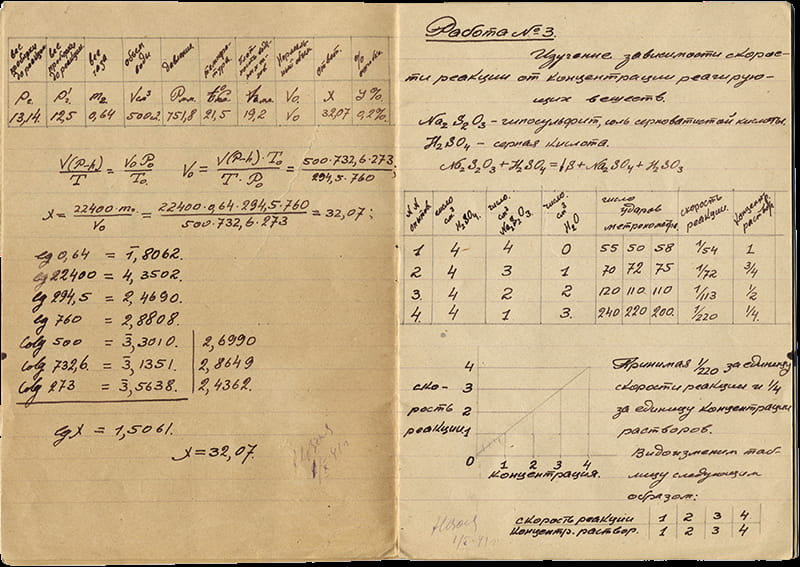 вес пробирки до реакции
вес пробирки по реакции
вес газа
объем воды
давление
температура
ответ.
% ошибки.
P₂ P₂' m₂ Vсм³ Pмм. t° Vо. X У%.
13,14. 12,5 0,64 500,2 751,8 21,5 19,2 Vо 32,07 0,2%.
V(P-h)/T = V₀P₀/T₀. V₀ = V(P-h)·T₀/T·P₀ = 500·732,6·273/294,5·760;
X = 22400·m₀/V₀ = 22400·0,64·294,5·760/500·732,6·273 = 32,07;
lg 0,64 = 1̄,8062.
lg 22400 = 4,3502.
lg 294,5 = 2,4690.
lg 760 = 2,8808.
Colg 500 = 3̄,3010. 2,6990
Colg 732,6. = 3̄,1351. 2,8649
Colg 273 = 3̄,5638. 2,4362.
lgX = 1,5061.
X = 32,07.
Работа № 3.
Изучение зависимости скорос-
ти реакции от концентрации реагирую-
щих веществ.
Na₂S₂O₃ - гипосульфит, соль серноватистой кислоты.
H₂SO₄ - серная кислота.
Na₂S₂O₃ + H₂SO₄ = + Na₂SO₄ + H₂SO₃
№№ опытов
число см³ H₂SO₄.
число. см³ Na₂S₂O₃.
число. см³ H₂O
число ударов метронома.
скорость реакции.
концентр. раствор.
1 4 4 0 55 50 58 1/54 1
2 4 3 1 70 72 75 1/72 3/4
3. 4 2 2 120 110 110 1/113 1/2
4. 4 1 3. 240 220 200. 1/220 1/4.
4
3
2
1
0
ско-
рость
реакции
1 2 3 4
Концентрация.
Принимая 1/220 за единицу
скорости реакции и 1/4
за единицу концентрации
растворов.
Видоизменим таб-
лицу следующим
образом:
скорость реакции 1 2 3 4
Концентр. раствор. 1 2 3 4